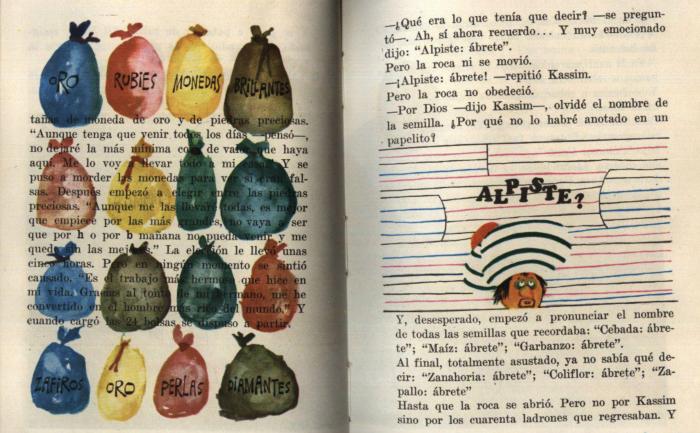 ORO RUBIES MONEDAS BRILLANTES
tañas de moneda de oro y de piedras preciosas.
"Aunque tenga que venir todos los días —pensó—,
no dejaré la más mínima cosa de valor que haya
aquí. Me lo voy a llevar todo a mi casa." Y se
puso a morder las monedas para ver si eran fal-
sas. Después empezó a elegir entre las piedras
preciosas. "Aunque me las llevaré todas, es mejor
que empiece por las más grandes, no vaya a ser
que por h o por b mañana no pueda venir y me
quede sin las mejores." La elección le llevó unas
cinco horas. Pero en ningún momento se sintió
cansado. "Es el trabajo más hermoso que hice en
mi vida. Gracias al tonto de mi hermano, me he
convertido en el hombre más rico del mundo." Y
cuando cargó las 24 bolsas se dispuso a partir.
ZAFIROS ORO PERLAS DIAMANTES
—¿Qué era lo que tenía que decir? —se pregun-
tó—. Ah, sí ahora recuerdo... Y muy emocionado
dijo: "Alpiste: ábrete".
Pero la roca ni se movió.
—¡Alpiste: ábrete! —repitió Kassim.
Pero la roca no obedeció.
—Por Dios —dijo Kassim—, olvidé el nombre de
la semilla. ¿Por qué no lo habré anotado en un
papelito?
ALPISTE?
Y, desesperado, empezó a pronunciar el nombre
de todas las semillas que recordaba: "Cebada: ábre-
te"; "Maíz: ábrete"; "Garbanzo: ábrete".
Al final, totalmente asustado, ya no sabía qué de-
cir: "Zanahoria: ábrete"; "Coliflor: ábrete"; "Za-
pallo: ábrete"
Hasta que la roca se abrió. Pero no por Kassim
sino por los cuarenta ladrones que regresaban. Y